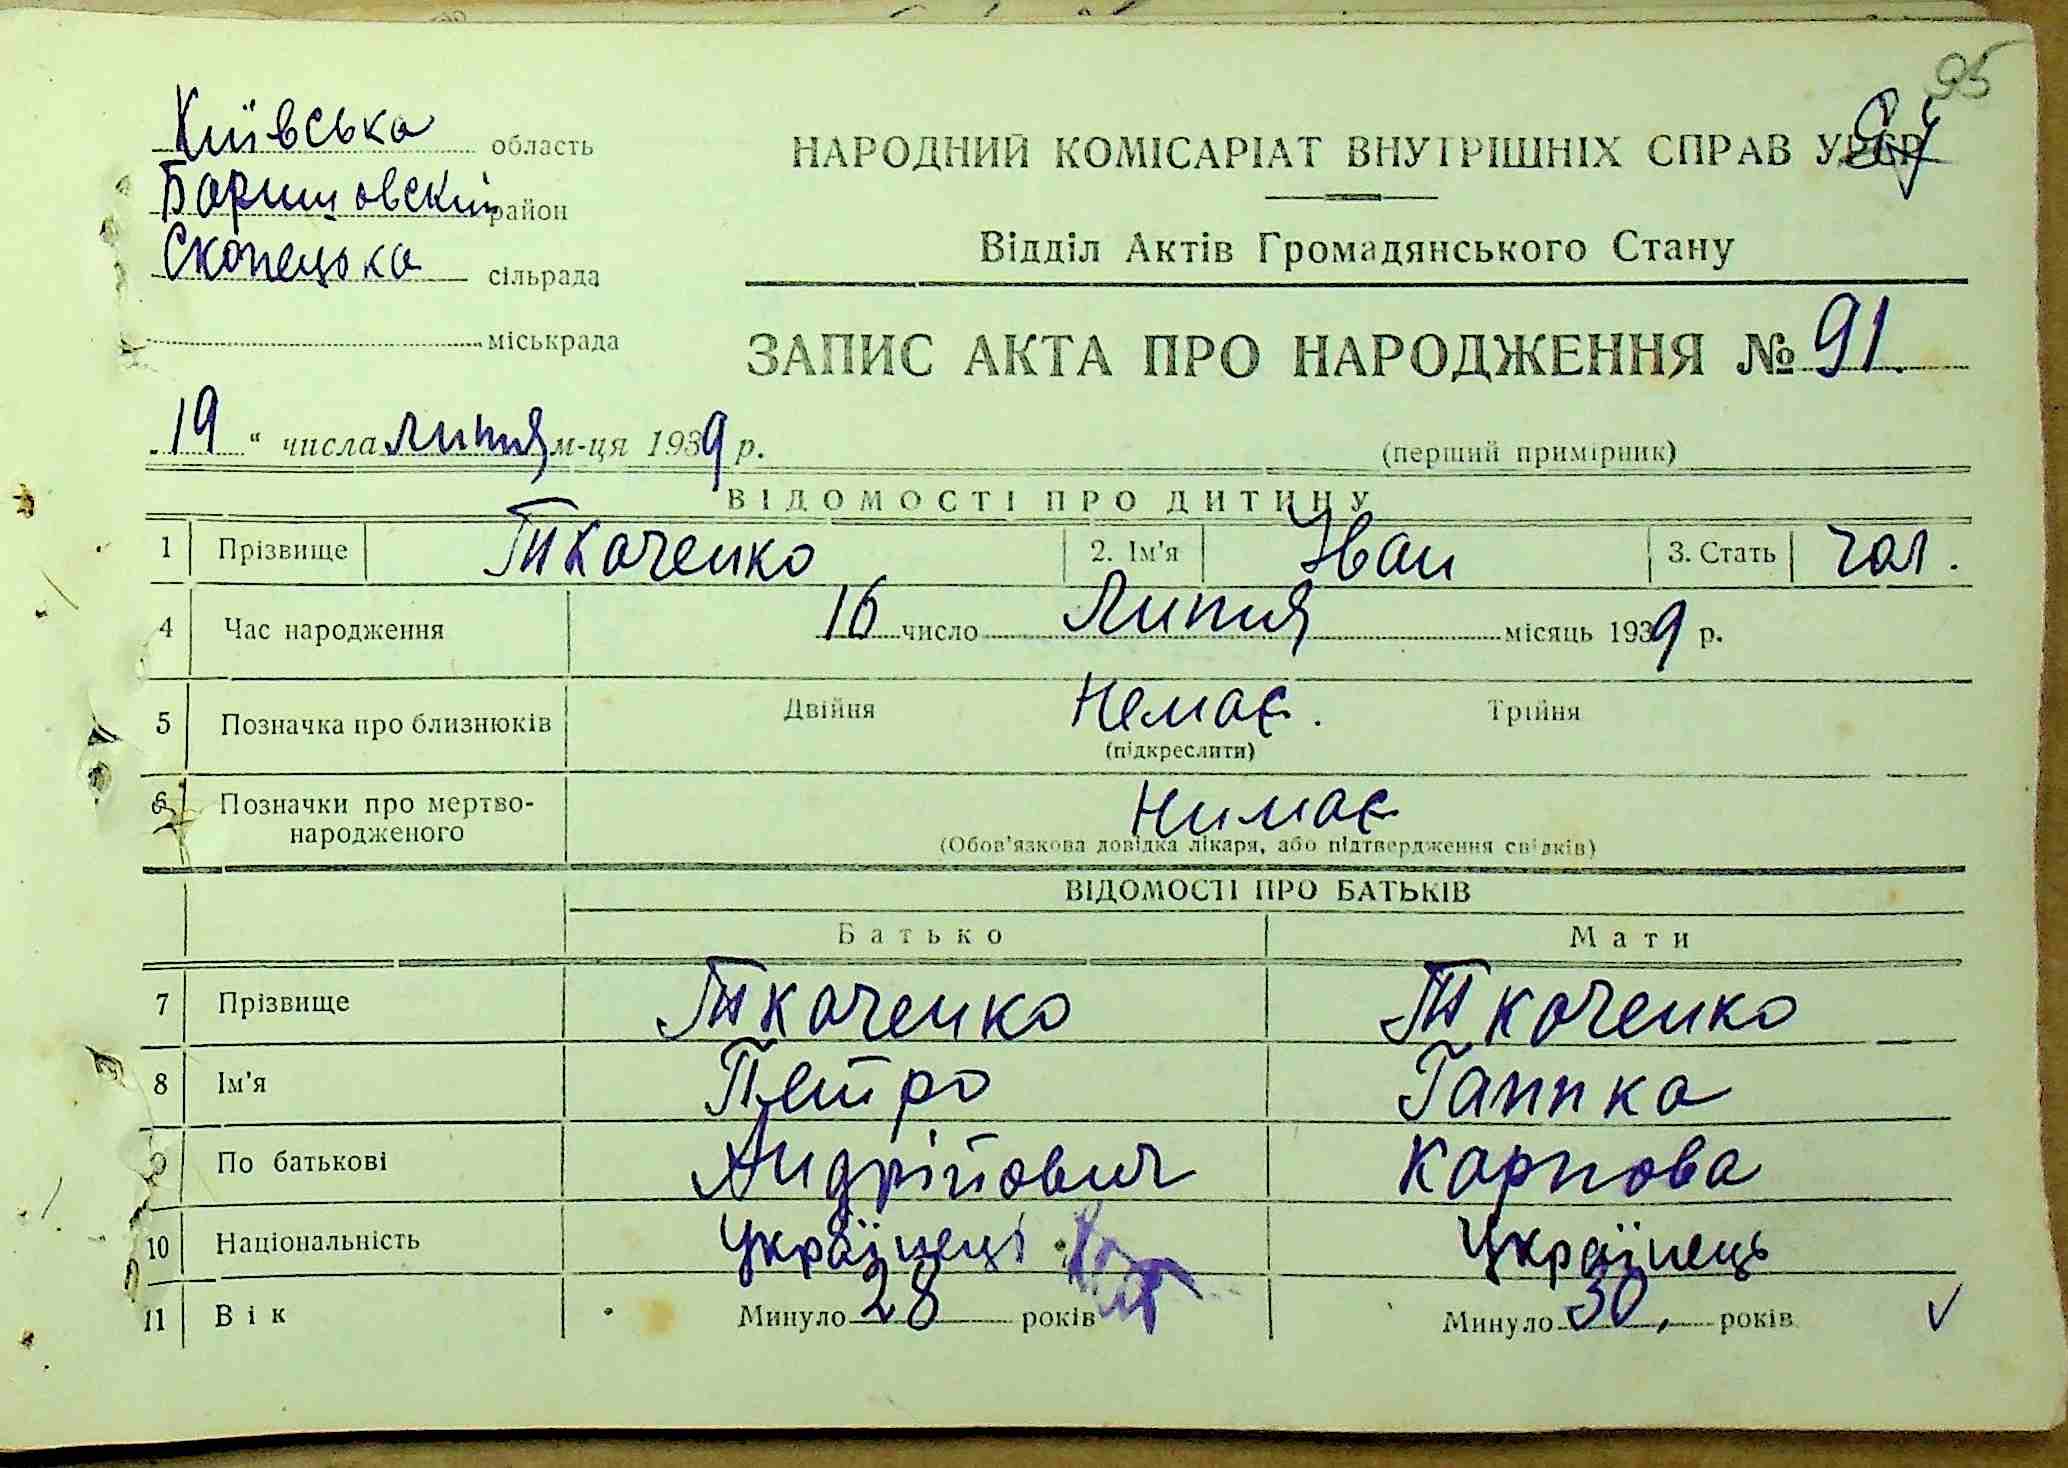 95
Київська область
Баришовский район
Скопецька сільрада
міськрада
НАРОДНИЙ КОМІСАРІАТ ВНУТРІШНІХ СПРАВ УРСР
Відділ Актів Громадянського Стану
ЗАПИС АКТА ПРО НАРОДЖЕННЯ № 91.
„19“ числа липня м-ця 1939 р.
(перший примірник)
ВІДОМОСТІ ПРО ДИТИНУ
1 Прізвище Ткаченко 2. Ім'я Іван 3. Стать чол.
4 Час народження 16 число Липня місяць 1939 р.
5 Позначка про близнюків Двійня Немає. Трійня
(підкреслити)
6 Позначки про мертво-
народженого Нимає
(Обов'язкова довідка лікаря, або підтвердження свідків)
ВІДОМОСТІ ПРО БАТЬКІВ
Батько Мати
7 Прізвище Ткаченко Ткаченко
8 Ім'я Петро Гаппка
9 По батькові Андрійович Карпова
10 Національність Українець Українець
11 Вік Минуло 28 років Минуло 30, років